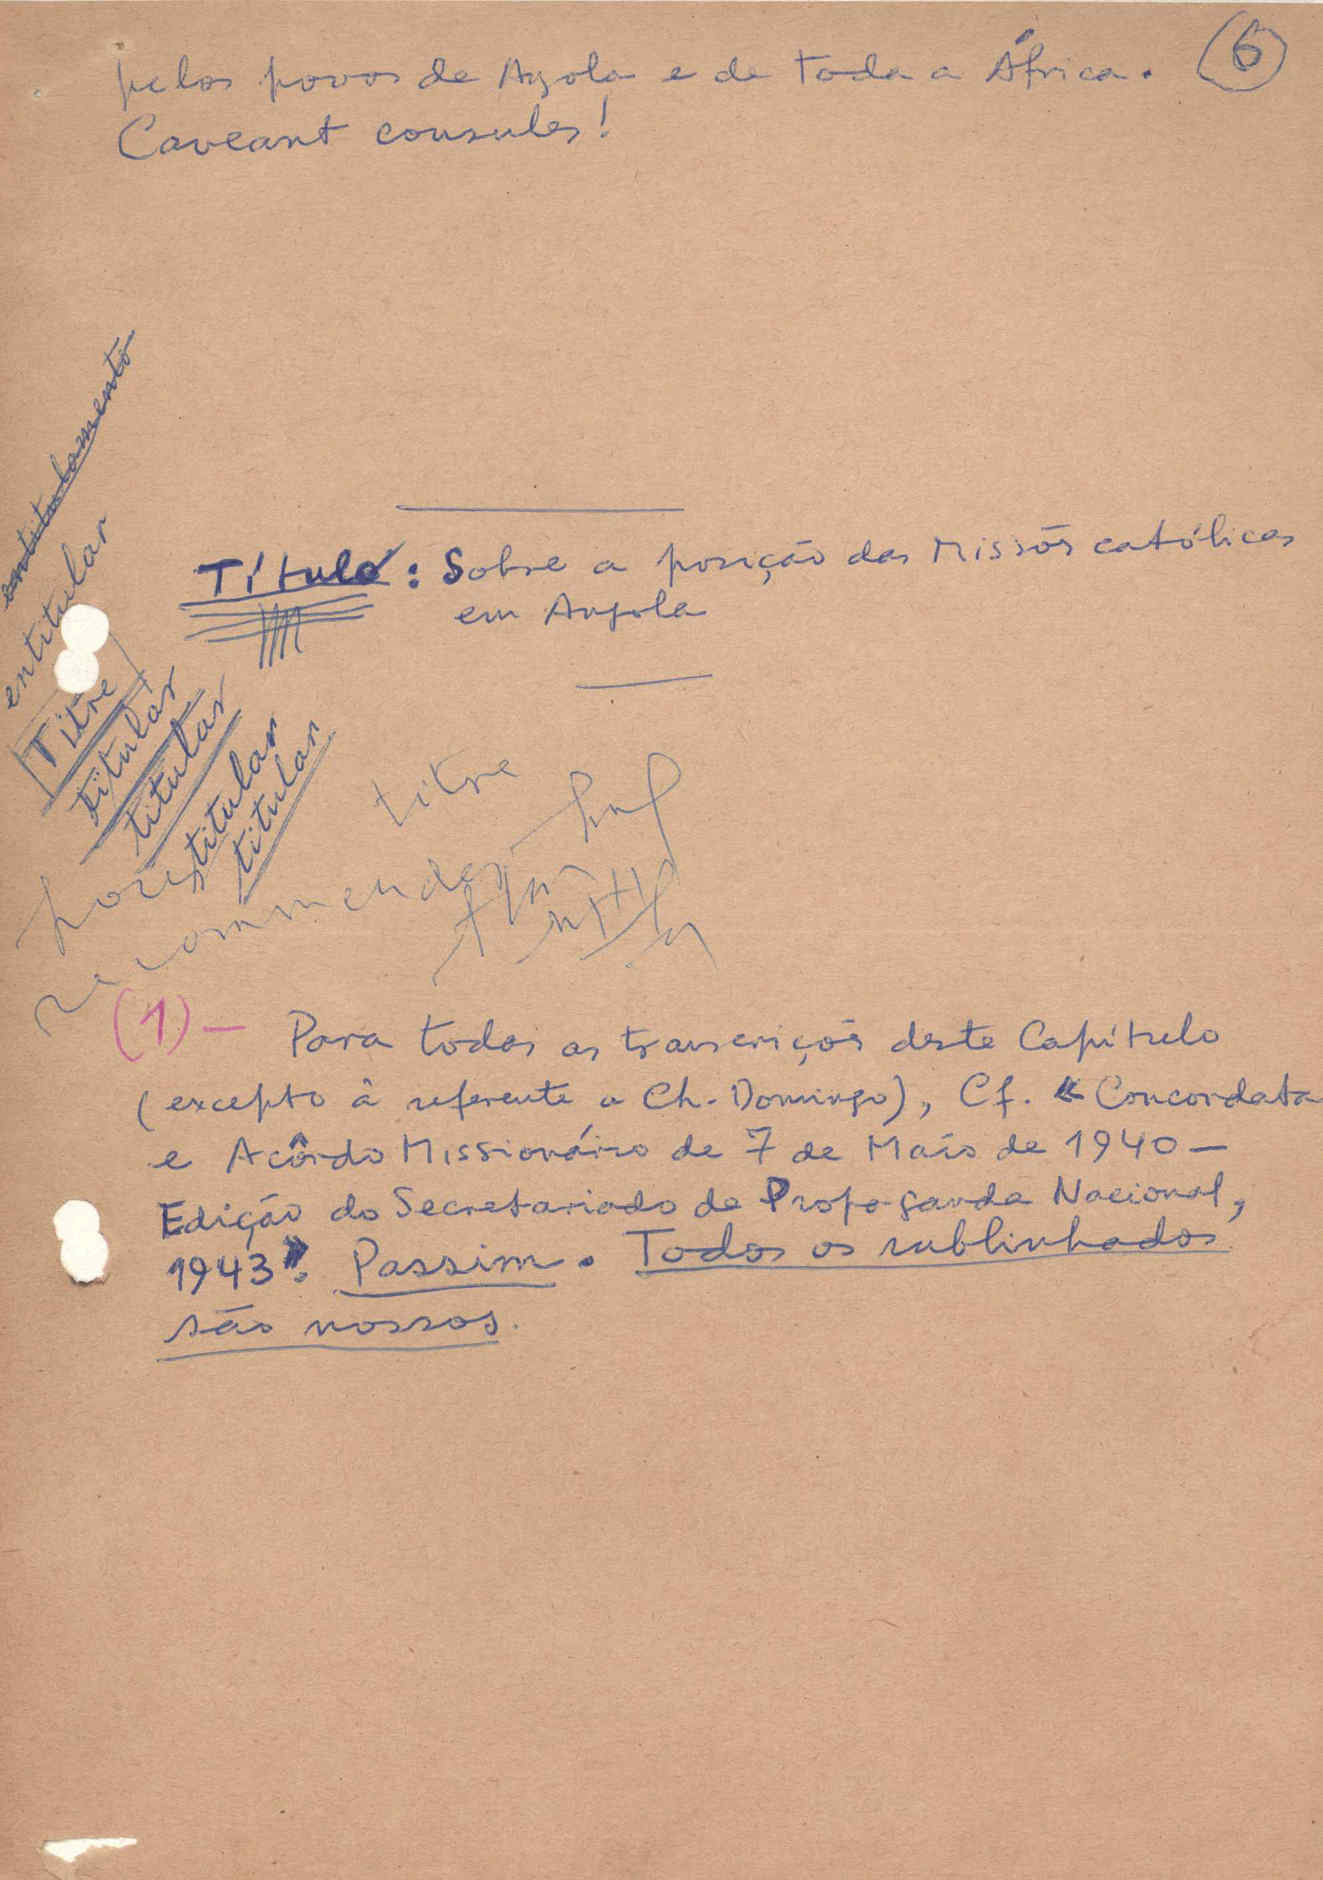 6
pelos povos de Agola e de toda a África.
Caveant consules!
entitulamento
entitular
Título: Sobre a posição das Missões católicas
em Angola
Titre
titular
titular
titular
titular
titre
recommender
(1) — Para todas as transcrições deste Capítulo
(excepto à referente a Ch. Domingo), Cf. «Concordata
e Acôrdo Missionário de 7 de Maio de 1940 —
Edição do Secretariado de Propaganda Nacional,
1943». Passim. Todos os sublinhados
são nossos.